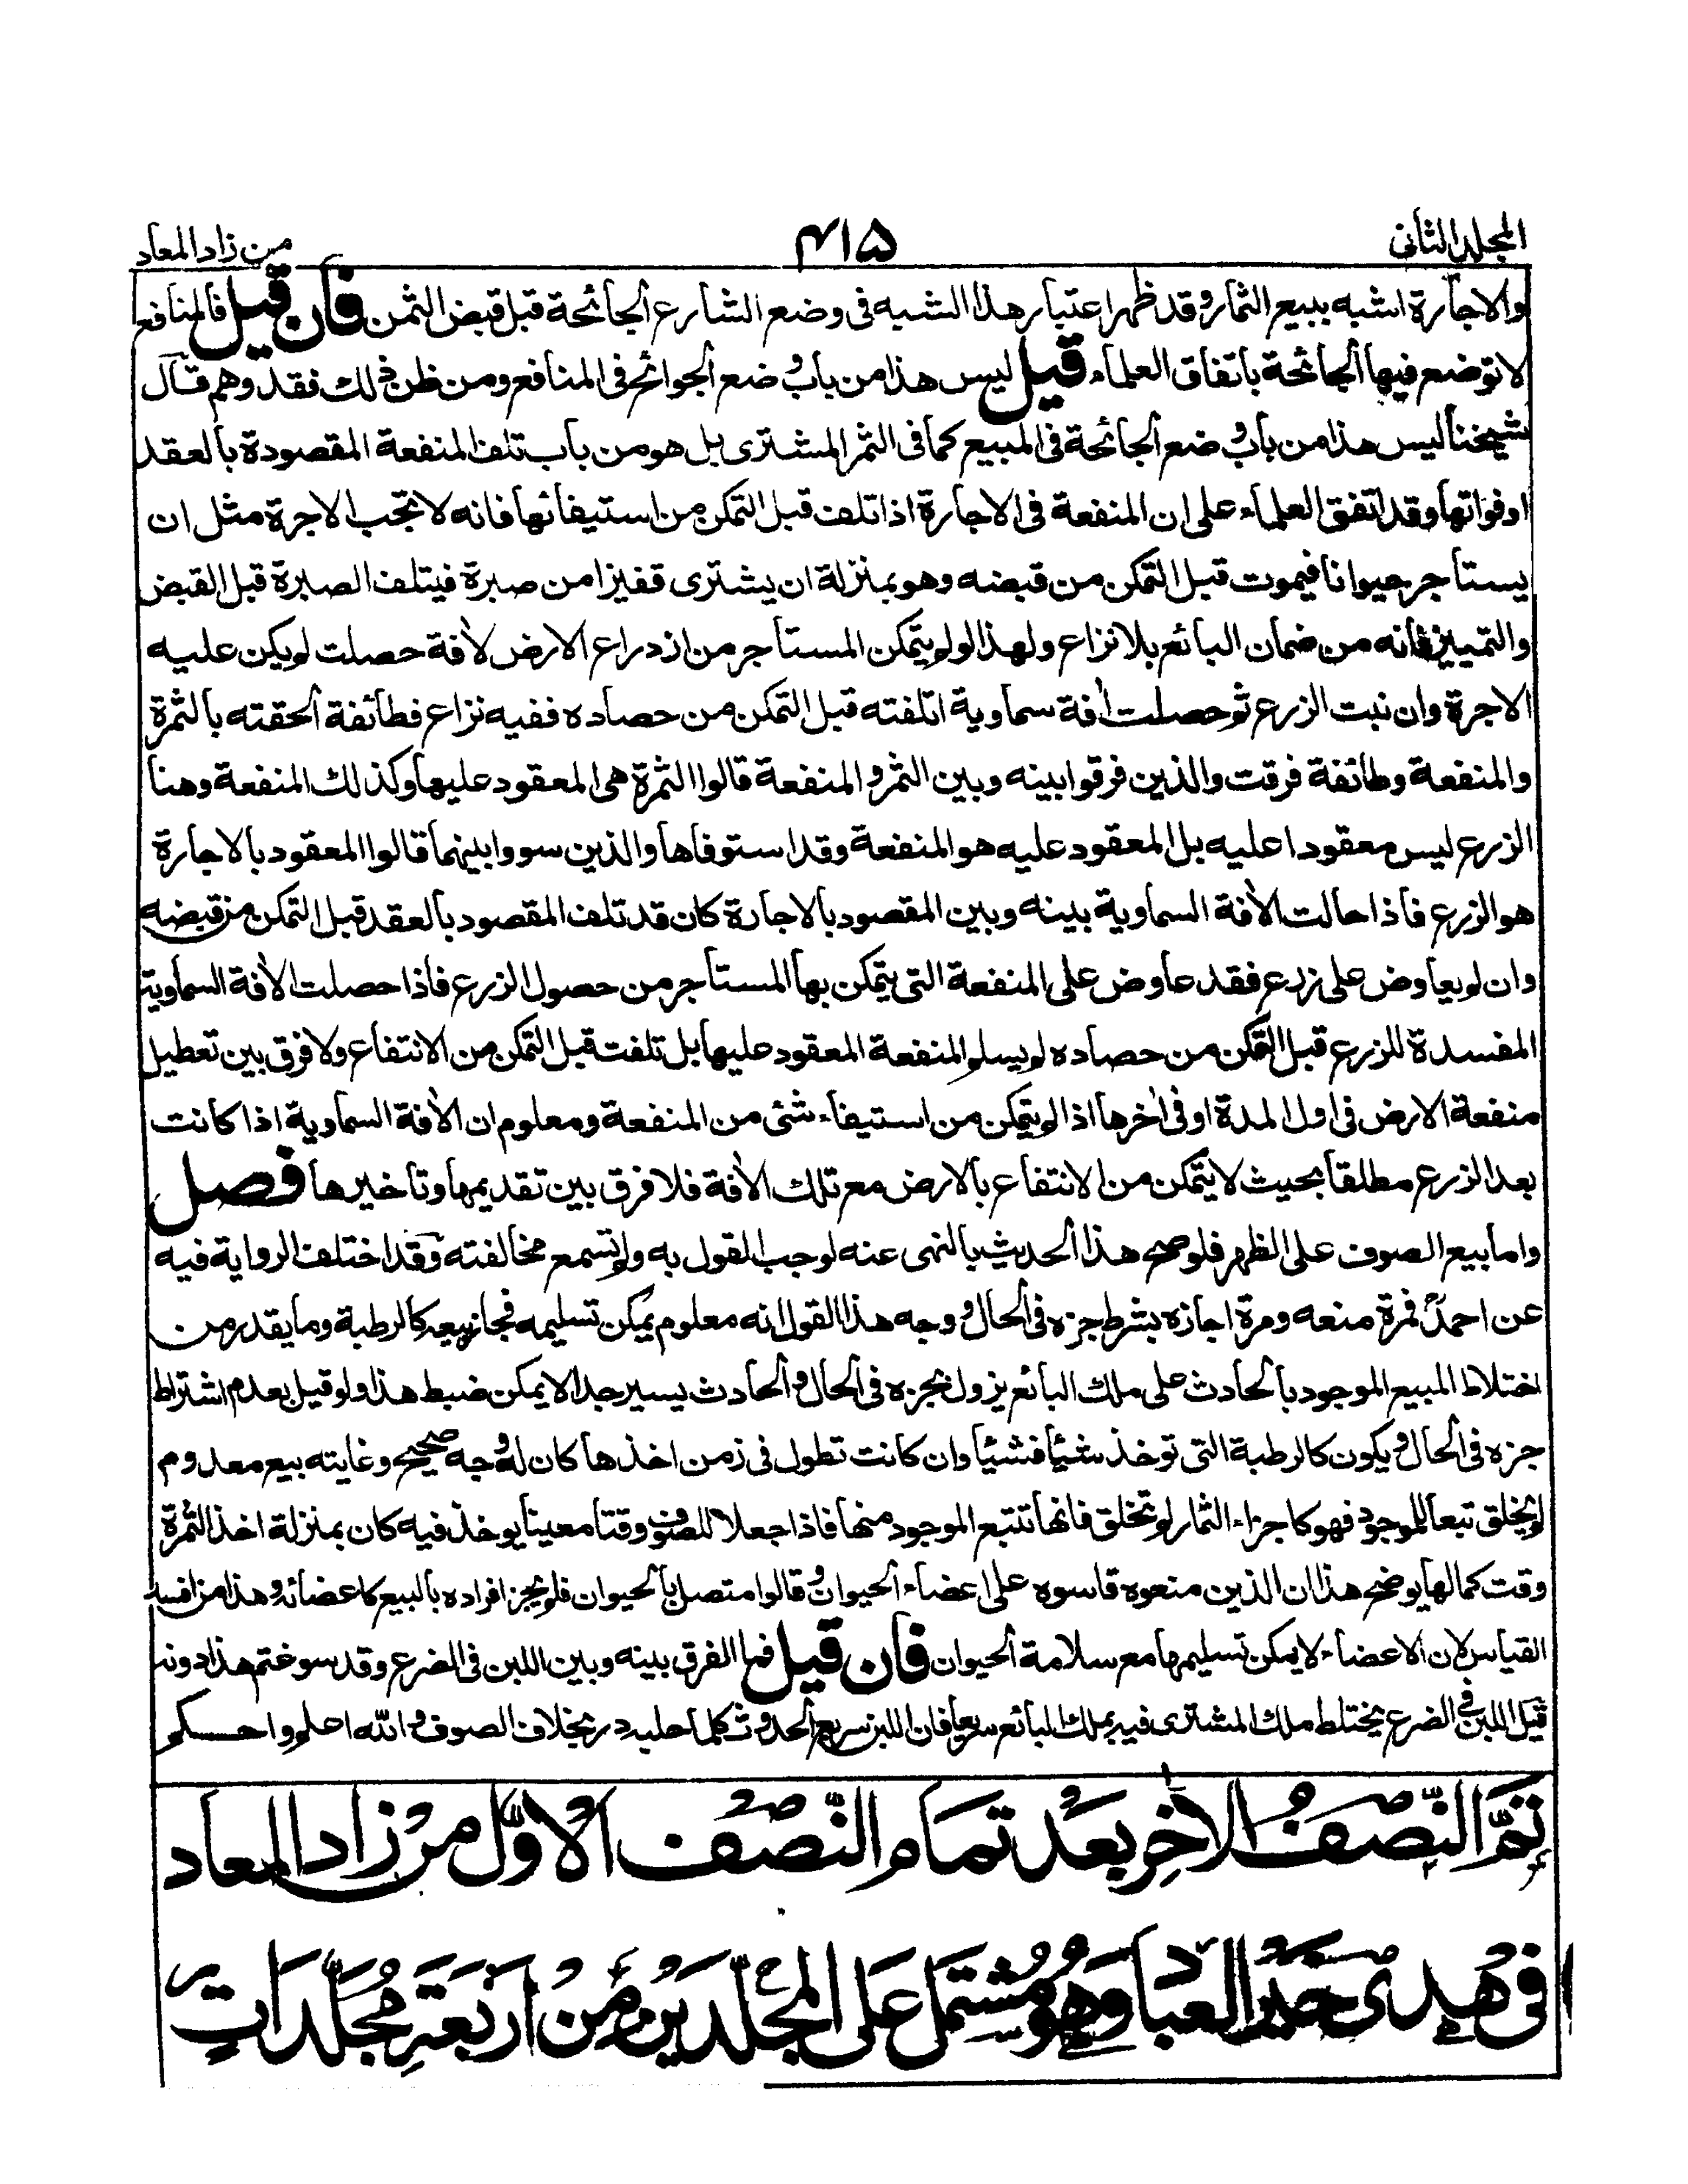 المجلد الثانى ٤١٥ من زاد المعاد
والاجارة اشبه ببيع الثمار وقد ظهر اعتبار هذا الشبه فى وضع الشارع الجائحة قبل قبض الثمن فان قيل فالمنافع
لا توضع فيها الجائحة باتفاق العلماء قيل ليس هذا من باب وضع الجوائح فى المنافع ومن ظن ذلك فقد وهم قال
شيخنا ليس هذا من باب وضع الجائحة فى المبيع كما فى الثمر المشترى بل هو من باب تلف المنفعة المقصودة بالعقد
او فواتها وقد اتفق العلماء على ان المنفعة فى الاجارة اذا تلفت قبل التمكن من استيفائها فانه لا تجب الاجرة مثل ان
يستاجر حيوانا فيموت قبل التمكن من قبضه وهو بمنزلة ان يشترى قفيزا من صبرة فيتلف الصبرة قبل القبض
والتمييز فانه من ضمان البائع بلا نزاع ولهذا لو لم يتمكن المستاجر من ازدراع الارض لأفة حصلت لم يكن عليه
الاجرة وان نبت الزرع ثم حصلت أفة سماوية اتلفته قبل التمكن من حصاده ففيه نزاع فطائفة الحقته بالثمرة
والمنفعة وطائفة فرقت والذين فرقوا بينه وبين الثمر والمنفعة قالوا الثمرة هى المعقود عليها وكذلك المنفعة وهنا
الزرع ليس معقودا عليه بل المعقود عليه هو المنفعة وقد استوفاها والذين سووا بينهما قالوا المعقود بالاجارة
هو الزرع فاذا حالت الأفة السماوية بينه وبين المقصود بالاجارة كان قد تلف المقصود بالعقد قبل التمكن من قبضه
وان لم يعاوض على زرع فقد عاوض على المنفعة التى يتمكن بها المستاجر من حصول الزرع فاذا حصلت الأفة السماوية
المفسدة للزرع قبل التمكن من حصاده لم يسلم المنفعة المعقود عليها بل تلفت قبل التمكن من الانتفاع ولا فرق بين تعطيل
منفعة الارض فى اول المدة او فى أخرها اذا لم يتمكن من استيفاء شئ من المنفعة ومعلوم ان الأفة السماوية اذا كانت
بعد الزرع مطلقا بحيث لا يتمكن من الانتفاع بالارض مع تلك الأفة فلا فرق بين تقديمها وتاخيرها فصل
واما بيع الصوف على الظهر فلو صح هذا الحديث بالنهى عنه لوجب القول به ولم تسمع مخالفته وقد اختلف الرواية فيه
عن احمدؒ فمرة منعه ومرة اجازه بشرط جزه فى الحال ووجه هذا القول انه معلوم يمكن تسليمه فجاز بيعه كالرطبة وما يقدر من
اختلاط المبيع الموجود بالحادث على ملك البائع يزول بجزه فى الحال والحادث يسير جدا لا يمكن ضبط هذا ولو قيل بعدم اشتراط
جزه فى الحال ويكون كالرطبة التى توخذ شئيا فشئيا وان كانت تطول فى زمن اخذها كان له وجه صحيح وغايته بيع معدوم
لم يخلق تبعا للموجود فهو كاجزاء الثمار لم تخلق فانها تتبع الموجود منها فاذا جعلا للصوف وقتا معينا يوخذ فيه كان بمنزلة اخذ الثمرة
وقت كمالها يوضح هذا ان الذين منعوه قاسوه على اعضاء الحيوان وقالوا متصل بالحيوان فلم يجز افراده بالبيع كاعضائه وهذا من افسد
القياس لان الاعضاء لا يمكن تسليمها مع سلامة الحيوان فان قيل فما الفرق بينه وبين اللبن فى الضرع وقد سوغتم هذا دونه
قيل اللبن فى الضرع يختلط ملك المشترى فيه بملك البائع سريعا فان اللبن سريع الحدوث كلما حلبه در بخلاف الصوف والله اعلم واحكم
تَمَّ النّصفُ الأخِر بَعْد تمام النّصْف الاوّل من زاد المعاد
فى هَدى خَير العباد وَهُو مُشتمل عَلى المجلّدين من اربَعَةِ مُجلّداتٍ